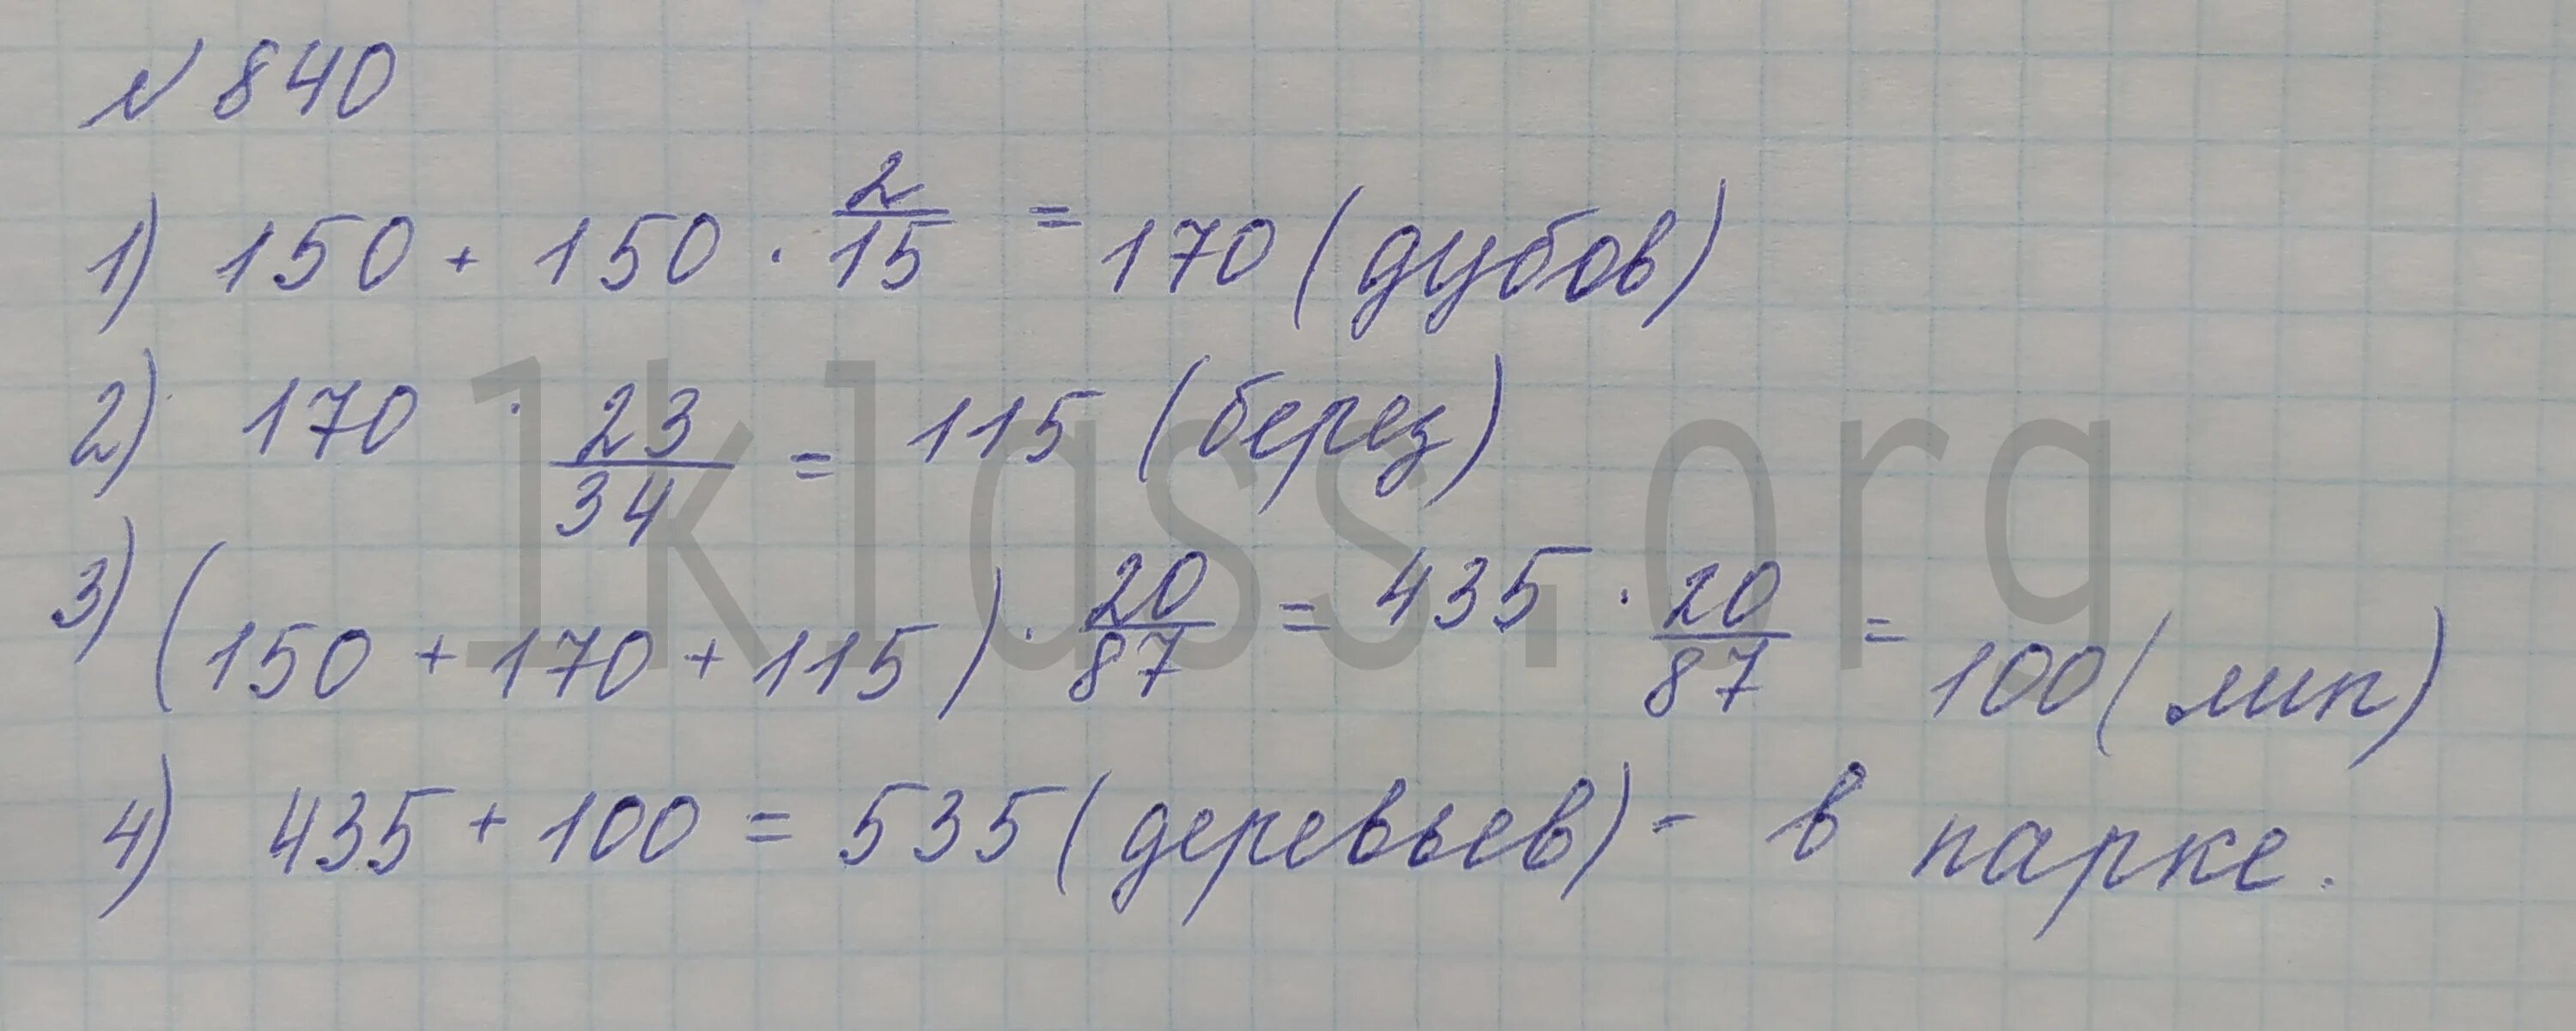 № 840
1) 150 + 150 · 2/15 = 170 (дубов)
2) 170 · 23/34 = 115 (берез)
3) (150 + 170 + 115) · 20/87 = 435 · 20/87 = 100 (лип)
4) 435 + 100 = 535 (деревьев) - в парке.
1klass.org